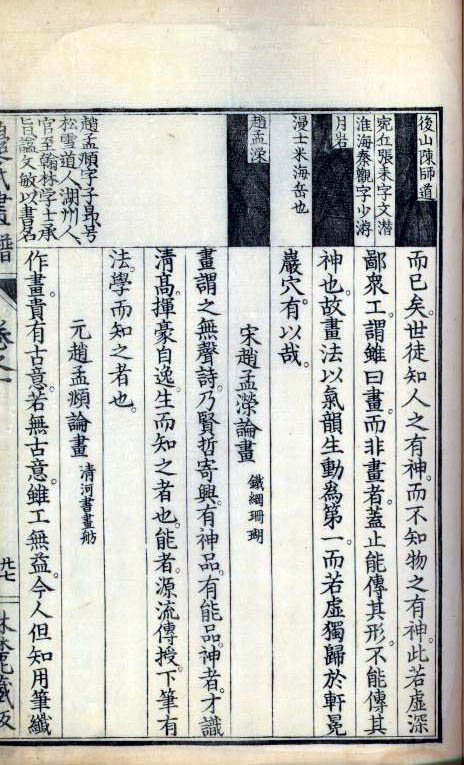 後山陳師道
宛丘張耒字文潛
淮海秦觀字少游
月岩
漫士米海岳也
趙孟濚
趙孟頫字子昻号
松雪道人湖州人
官至翰林学士承
旨謚文敏以書名
而已矣。世徒知人之有神。而不知物之有神。此若虛深
鄙衆工。謂雖曰畫。而非畫者。蓋止能傳其形。不能傳其
神也。故畫法以氣韻生動為第一。而若虛獨歸於軒冕
巖穴。有以哉。
宋趙孟濚論畫 鐵網珊瑚
畫謂之無聲詩。乃賢哲寄興。有神品。有能品。神者。才識
清高。揮豪自逸。生而知之者也。能者。源流傳授。下筆有
法。學而知之者也。
元趙孟頫論畫 清河書畫舫
作畫貴有古意。若無古意。雖工無益。今人但知用筆纖
卷之一
廿七